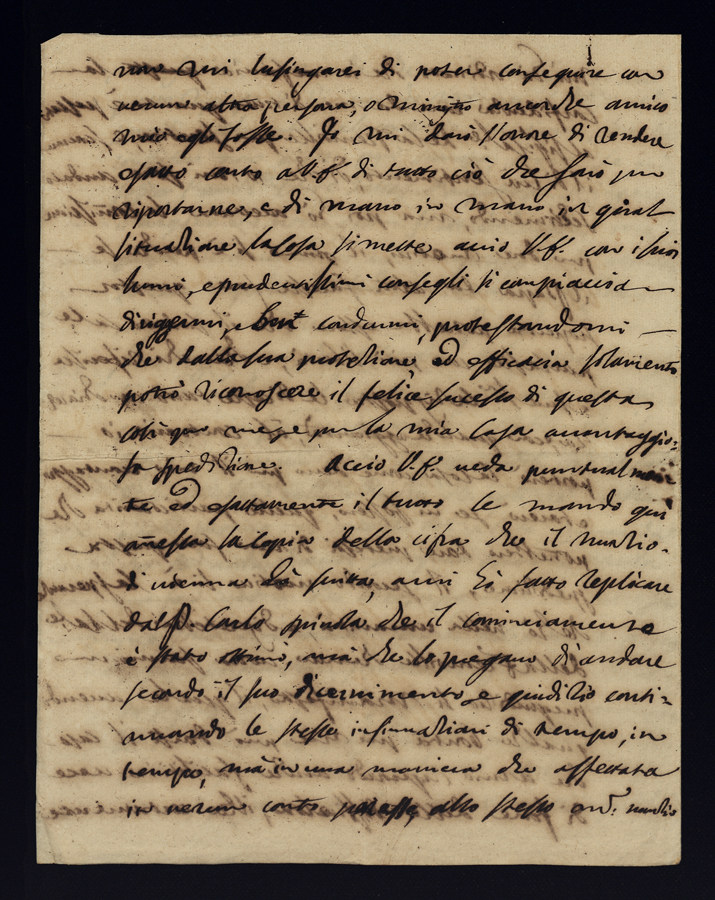 non mi lusingarei di poter conseguire con
verun altra persona, o ministro ancorche amico
mio egli fosse. Io mi darò l'onore di rendere
esatto conto a V.E. di tutto ciò che sarò per
riportarne, e di mano in mano in qual
situatione la Cosa si mette acciò V.E. con i suoi
lumi, e prudentissimi consegli si compiaccia
dirigermi, e condurmi, protestandomi
che dalla sua protetione, ed efficacia solamente
potrò riconoscere il felice sucesso di questa
così per me, e per la mia Casa avantaggio=
sa speditione. Acciò V.E. veda puntualmen
te ed esattamente il tutto le mando qui
annessa la Copia della cifra che il nuntio
di vienna hà scritta, a cui hò fatto replicare
dal P. Carlo che il cominciamento
è stato ottimo, mà che lo pregavo di andare
secondo il suo dicernimento, e giuditio conti=
nuando le stesse insinuationi di tempo, in
tempo, mà in una maniera che affettata
in verun conto paresse allo stesso nuntio